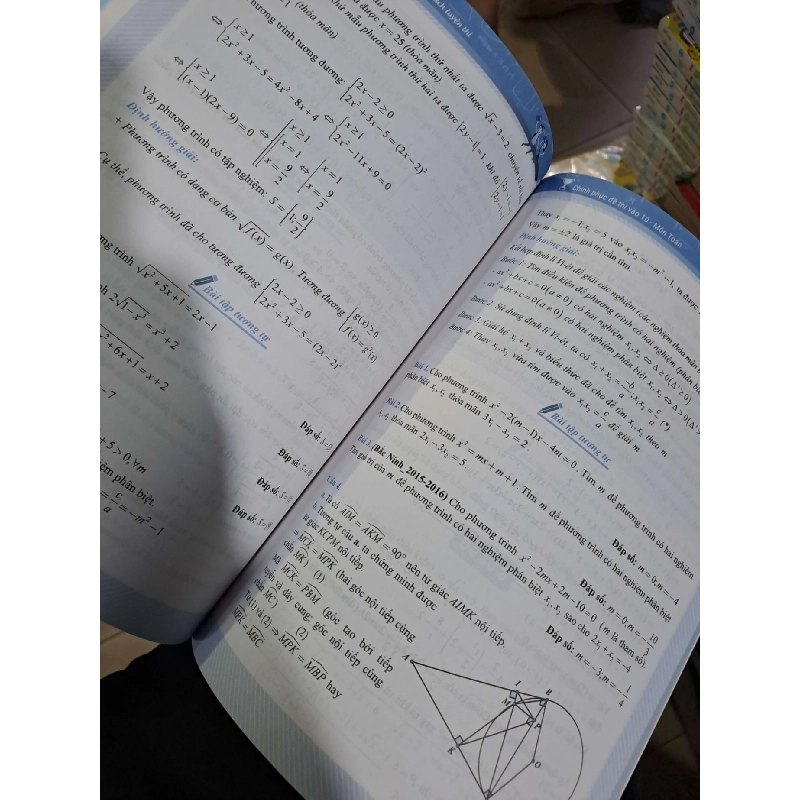 ách luyện thi
phương trình thứ nhất ta được √x − 3 = 2, chuyển vế
được x = 25 (thỏa mãn)
phương trình thứ hai ta được |2y − 1| = 1, khi đó
(thỏa mãn)
phương trình tương đương {2x − 2 ≥ 0; 2x² + 3x − 5 = (2x − 2)²
⇔ {x ≥ 1; 2x² + 3x − 5 = 4x² − 8x + 4 ⇔ {x ≥ 1; 2x² − 11x + 9 = 0
⇔ {x ≥ 1; (x − 1)(2x − 9) = 0 ⇔ {x ≥ 1; [x = 1; x = 9/2 ⇔ [x = 1; x = 9/2
Vậy phương trình có tập nghiệm: S = {1; 9/2}
Định hướng giải:
+ Phương trình có dạng cơ bản √f(x) = g(x). Tương đương {g(x) ≥ 0; f(x) = g²(x)
Cụ thể, phương trình đã cho tương đương {2x − 2 ≥ 0; 2x² + 3x − 5 = (2x − 2)²
Bài tập tương tự
trình √x² + 5x + 1 = 2x − 1
2√1 − x³ = x³ + 2
+ 6x + 1 = x + 2
− 7
Đáp số:
Đáp số:
Đáp số:
Đáp số:
+ 5 > 0, ∀m
phân biệt.
= c/a = −m² − 1
Chinh phục đề thi vào 10 - Môn Toán
Thay x₁ = −1; x₂ = 5 vào x₁x₂ = −m² − 1, ta được
Vậy m = ±2 là giá trị cần tìm.
Định hướng giải:
Kết hợp định lí Vi-ét để giải các nghiệm (các nghiệm thỏa mãn
Bước 1: Tìm điều kiện để phương trình có hai nghiệm (phân biệt
- ax² + bx + c = 0 (a ≠ 0) có hai nghiệm x₁, x₂ ⇔ Δ ≥ 0 (Δ' ≥ 0)
- ax² + bx + c = 0 (a ≠ 0) có hai nghiệm phân biệt x₁, x₂ ⇔ Δ > 0 (Δ'
Bước 2: Sử dụng định lí Vi-ét, ta có x₁ + x₂ = −b/a; x₁x₂ = c/a (*)
Bước 3: Giải hệ x₁ + x₂ và biểu thức đã cho để tìm x₁, x₂ theo m.
Bước 4: Thay x₁, x₂ vừa tìm được vào x₁x₂ = c/a để giải m
Bài tập tương tự
Bài 1. Cho phương trình x² − 2(m − 1)x − 4m = 0. Tìm m để phương trình có hai nghiệm
phân biệt x₁, x₂ thỏa mãn 3x₁ − x₂ = 2
Đáp số: m = 0; m = −4
Bài 2. Cho phương trình x² = mx + m + 1. Tìm m để phương trình có hai nghiệm phân biệt
x₁, x₂ thỏa mãn 2x₁ − 3x₂ = 5.
Đáp số: m = 0; m = −10/3
Bài 3. (Bắc Ninh_2015-2016) Cho phương trình x² − 2mx + 2m − 10 = 0 (m là tham số).
Tìm giá trị của m để phương trình có hai nghiệm phân biệt x₁, x₂ sao cho 2x₁ + x₂ = −4
Đáp số: m = −3, m = −1/4
Câu 4.
a. Ta có AIM = AKM = 90° nên tứ giác AIMK nội tiếp
b. Tương tự câu a. ta chứng minh được
tứ giác KCPM nội tiếp.
⇒ MCK = MPK (hai góc nội tiếp cùng
chắn MK) (1)
Mà MCK = PBM (góc tạo bởi tiếp
tuyến và dây cung; góc nội tiếp cùng
chắn MC) (2)
Từ (1) và (2) ⇒ MPK = MBP hay
MPK = MBC
A
I
B
M
P
K
O